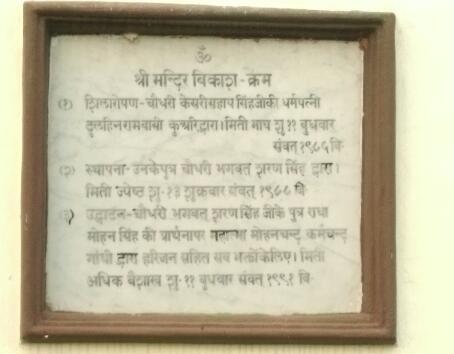 ॐ
श्री मन्दिर विकाश-क्रम
(१) शिलारोपण-चौधरी केसरीसहाय सिंहजीकी धर्मपत्नी
दुलहिनरामबासी कुअरिद्वारा।मिती माघ शु.११ बुधवार
संवत् १९८५ वि.
(२) स्थापना-उनके पुत्र चौधरी भगवत् शरण सिंह द्वारा।
मिती ज्येष्ठ शु-१३ शुक्रवार संवत् १९८८ वि.
(३) उद्घाटन-चौधरी भगवत् शरण सिंह जीके पुत्र राधा
मोहन सिंह की प्रार्थनापर महात्मा मोहनचन्द कर्मचन्द
गांधी द्वारा हरिजन सहित सब भक्तोंकेलिए। मिती
अधिक बैशाख शु-११ बुधवार संवत् १९९१ वि.